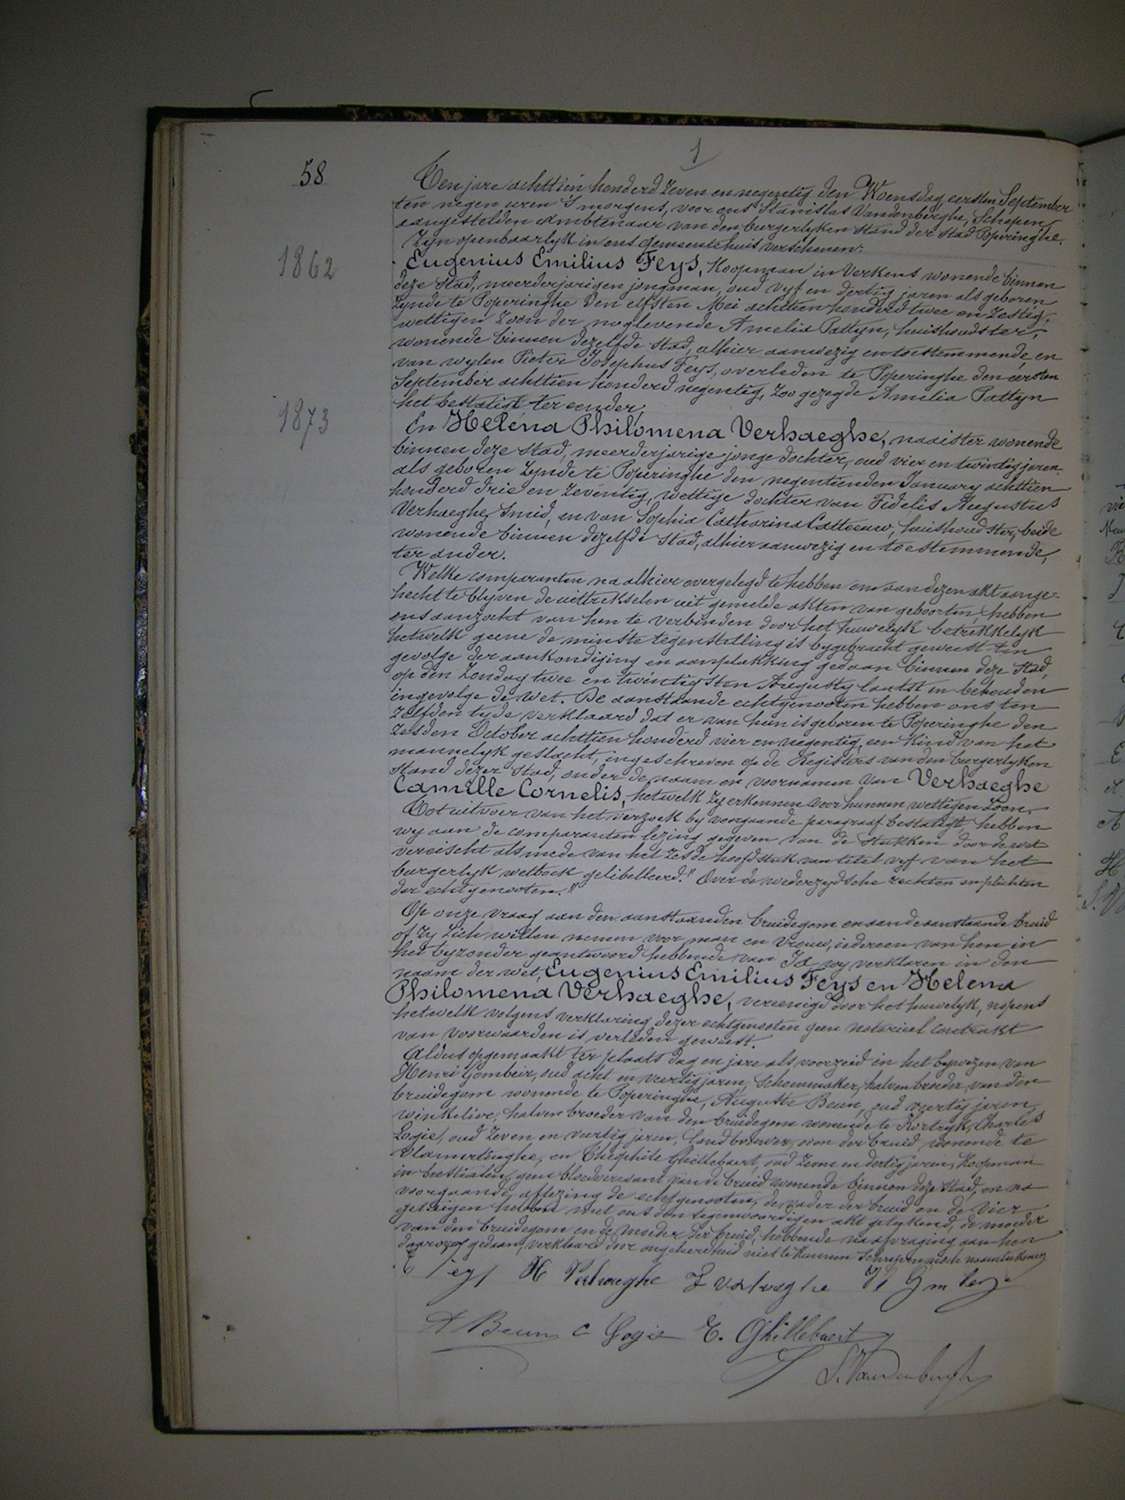 1
58
Ten jare achttien honderd zeven en negentig den Woensdag eersten September
ten negen uren 's morgens, voor ons Stanislas Vandenberghe, Schepen,
aangestelden Ambtenaar van den burgerlyken stand der stad Poperinghe,
Zyn openbaarlyk in ons gemeentehuis verschenen:
1862
Eugenius Emilius Feys, Koopman in Verkens wonende binnen
deze stad, meerderjarigen jongman, oud vyf en dertig jaren als geboren
zynde te Poperinghe den elfsten Mei achttien honderd twee en zestig,
wettigen zoon der noglevende Amelia Patlyn, huishoudster,
wonende binnen dezelfde stad, alhier aanwezig en toestemmende, en
van wylen Pieter Josephus Feys, overleden te Poperinghe den eersten
September achttien honderd negentig, zoo gezegde Amelia Patlyn
het bestatist ter eender,
1873
En Helena Philomena Verhaeghe, naaister wonende
binnen deze stad, meerderjarige jonge dochter, oud vier en twintig jaren
als geboren zynde te Poperinghe den negentienden January achttien
honderd drie en zeventig, wettige dochter van Fidelis Augustus
Verhaeghe, Smid, en van Sophia Catharina Cattouw, huishoudster, beide
wonende binnen dezelfde stad, alhier aanwezig en toestemmende,
ter ander.
Welke comparanten na alhier overgelegd te hebben om aan dezen akt aange-
hecht te blyven de uittrekselen uit gemelde akten van geboorten, hebben
ons aanzocht van hen te verbinden door het huwelyk betrekkelyk
hetwelk geene de minste tegenstelling is bygebracht geweest ten
gevolge der aankondiging en aanplakking gedaan binnen deze stad,
op den Zondag twee en twintigsten Augusty laatst in behouden
ingevolge de wet. De aanstaande echtgenooten hebben ons ten
zelfden tyde verklaard dat er van hun is geboren te Poperinghe den
zesden October achttien honderd vier en negentig, een kind van het
mannelyk geslacht, ingeschreven op de Registers van den burgerlyken
stand dezer stad, onder de naam en voornamen van Verhaeghe
Camille Cornelis, hetwelk zy erkennen voor hunnen wettigen zoon.
Tot uitvoer van het verzoek by voorgaande paragraaf bestatigt hebben
wy aan de comparanten lezing gegeven van de stukken door de wet
vereischt als mede van het zesde hoofdstuk van titel vyf van het
burgerlyk wetboek gelibelleerd: "Over de wederzydsche rechten en plichten
der echtgenooten."
Op onze vraag aan den aanstaanden bruidegom en aan de aanstaande bruid
of zy zich willen nemen voor man en vrouw, iedereen van hen in
het byzonder geantwoord hebbende van Ja wy verklaren in den
naam der wet, Eugenius Emilius Feys en Helena
Philomena Verhaeghe, vereenigd door het huwelyk, nopens
hetwelk volgens verklaring dezer echtgenooten geen notariael contrakt
van voorwaarden is verleden geweest.
Aldus opgemaakt ter plaats dag en jare als voorzeid in het bywezen van
Henri Gombeir, oud acht en veertig jaren, Schoenmaker, halven broeder van den
bruidegom wonende te Poperinghe, Auguste Beun, oud veertig jaren,
winkelier, halven broeder van den bruidegom wonende te Kortryk, Charles
Logie, oud zeven en veertig jaren, Landbouwer, oom der bruid, wonende te
Vlamertinghe, en Théophile Ghillebaert, oud zeven en dertig jaren, Koopman
in beestialen, geen bloedverwant van de bruid wonende binnen deze stad, en na
voorgaande aflezing de echtgenooten, de vader der bruid en de vier
getuigen hebben met ons den tegenwoordigen akt geteekend, de moeder
van den bruidegom en de moeder der bruid, hebbende na afvraging aan hen
daarover gedaan, verklaard door ongeleerdheid niet te kunnen schryven noch naamteekenen
E Feys H Verhaeghe F Verhaeghe H Gombeir
A Beun C Logie T. Ghillebaert
S. Vandenberghe